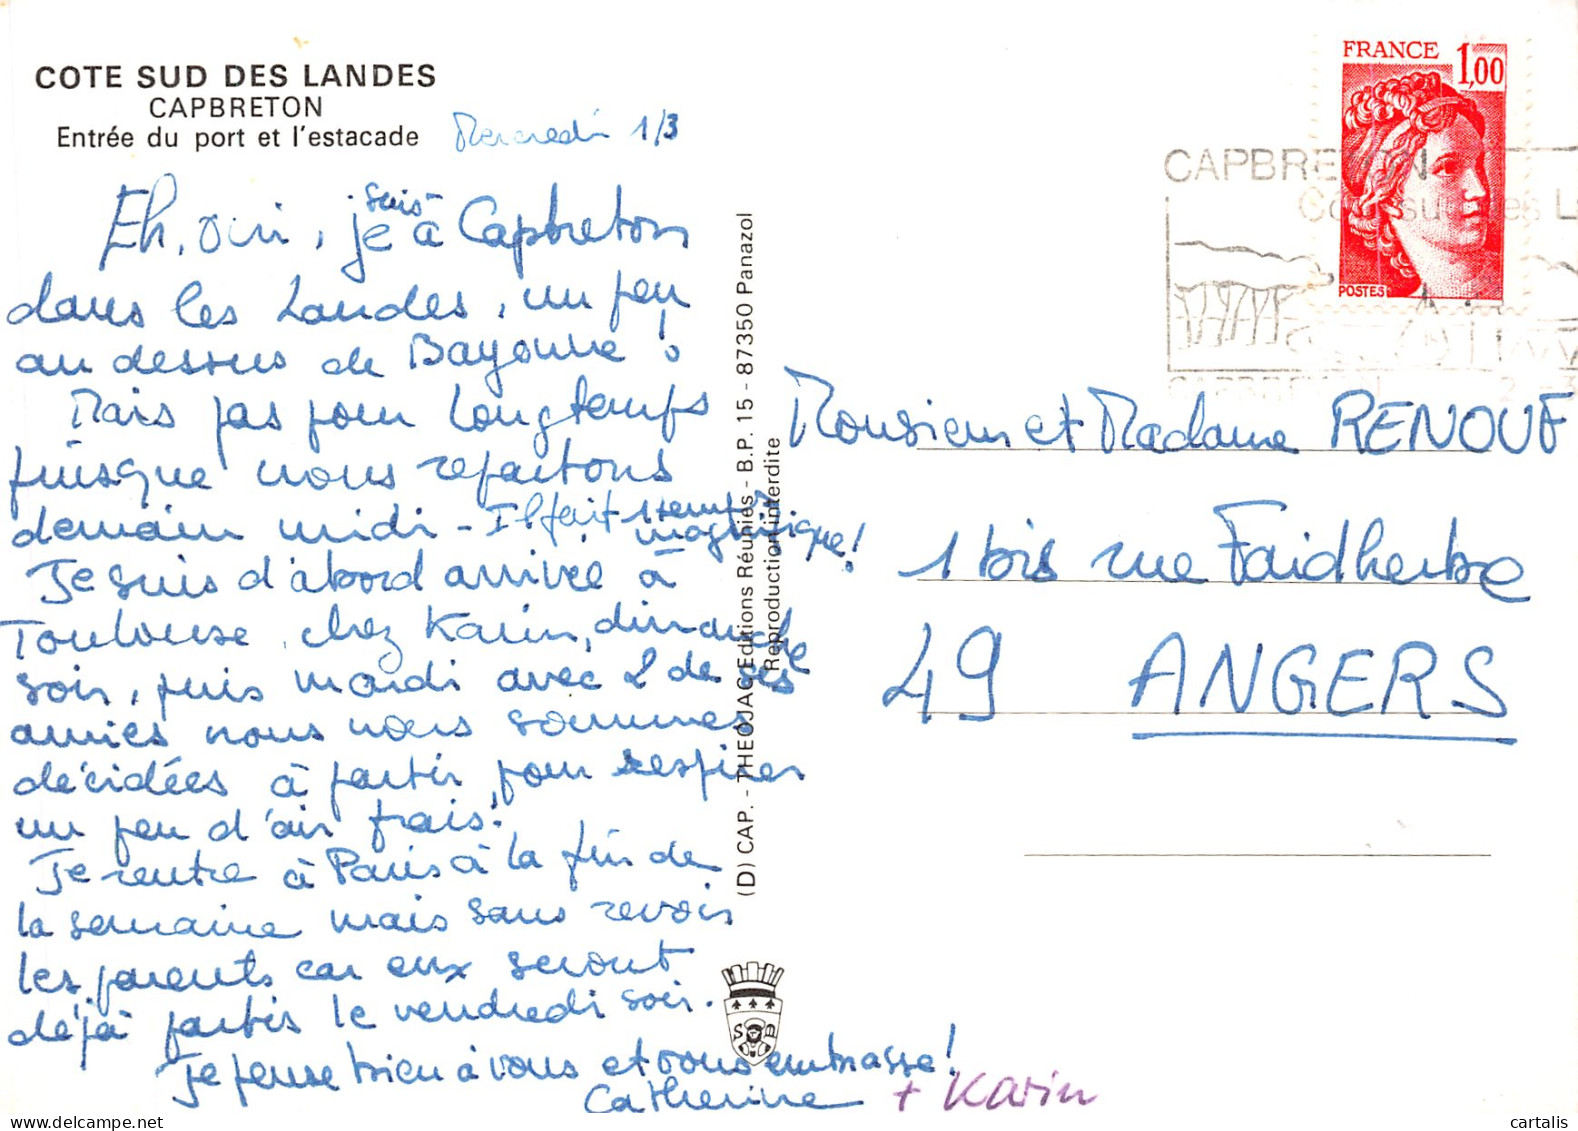 COTE SUD DES LANDES
CAPBRETON
Entrée du port et l'estacade
Mercredi 1/3
Eh, oui, je suis à Capbreton
dans les Landes, un peu
au dessus de Bayonne !
Mais pas pour longtemps
puisque nous repartons
demain midi - Il fait 1 temps magnifique !
Je suis d'abord arrivée à
Toulouse, chez Karin, dimanche
soir, puis mardi avec 2 de ses
amies nous nous sommes
décidées à partir pour respirer
un peu d'air frais !
Je rentre à Paris à la fin de
la semaine mais sans revoir
les parents car eux seront
déjà partis le vendredi soir.
Je pense bien à vous et vous embrasse !
Catherine + Karin
(D) CAP. - THEOJAC Editions Réunies - B.P. 15 - 87350 Panazol
Reproduction interdite
S M
FRANCE 1,00
POSTES
CAPBRETON
Côte sud des L
CAPBRETON 2-3
Monsieur et Madame RENOUF
1 bis rue Faidherbe
49 ANGERS
cartalis.com